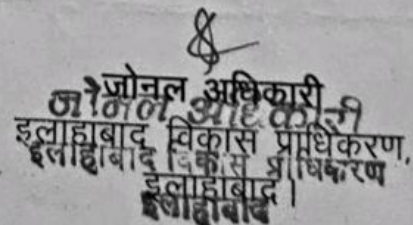 जोनल अधिकारी
जोनल अधिकारी
इलाहाबाद विकास प्राधिकरण,
इलाहाबाद विकास प्राधिकरण
इलाहाबाद।
इलाहाबाद